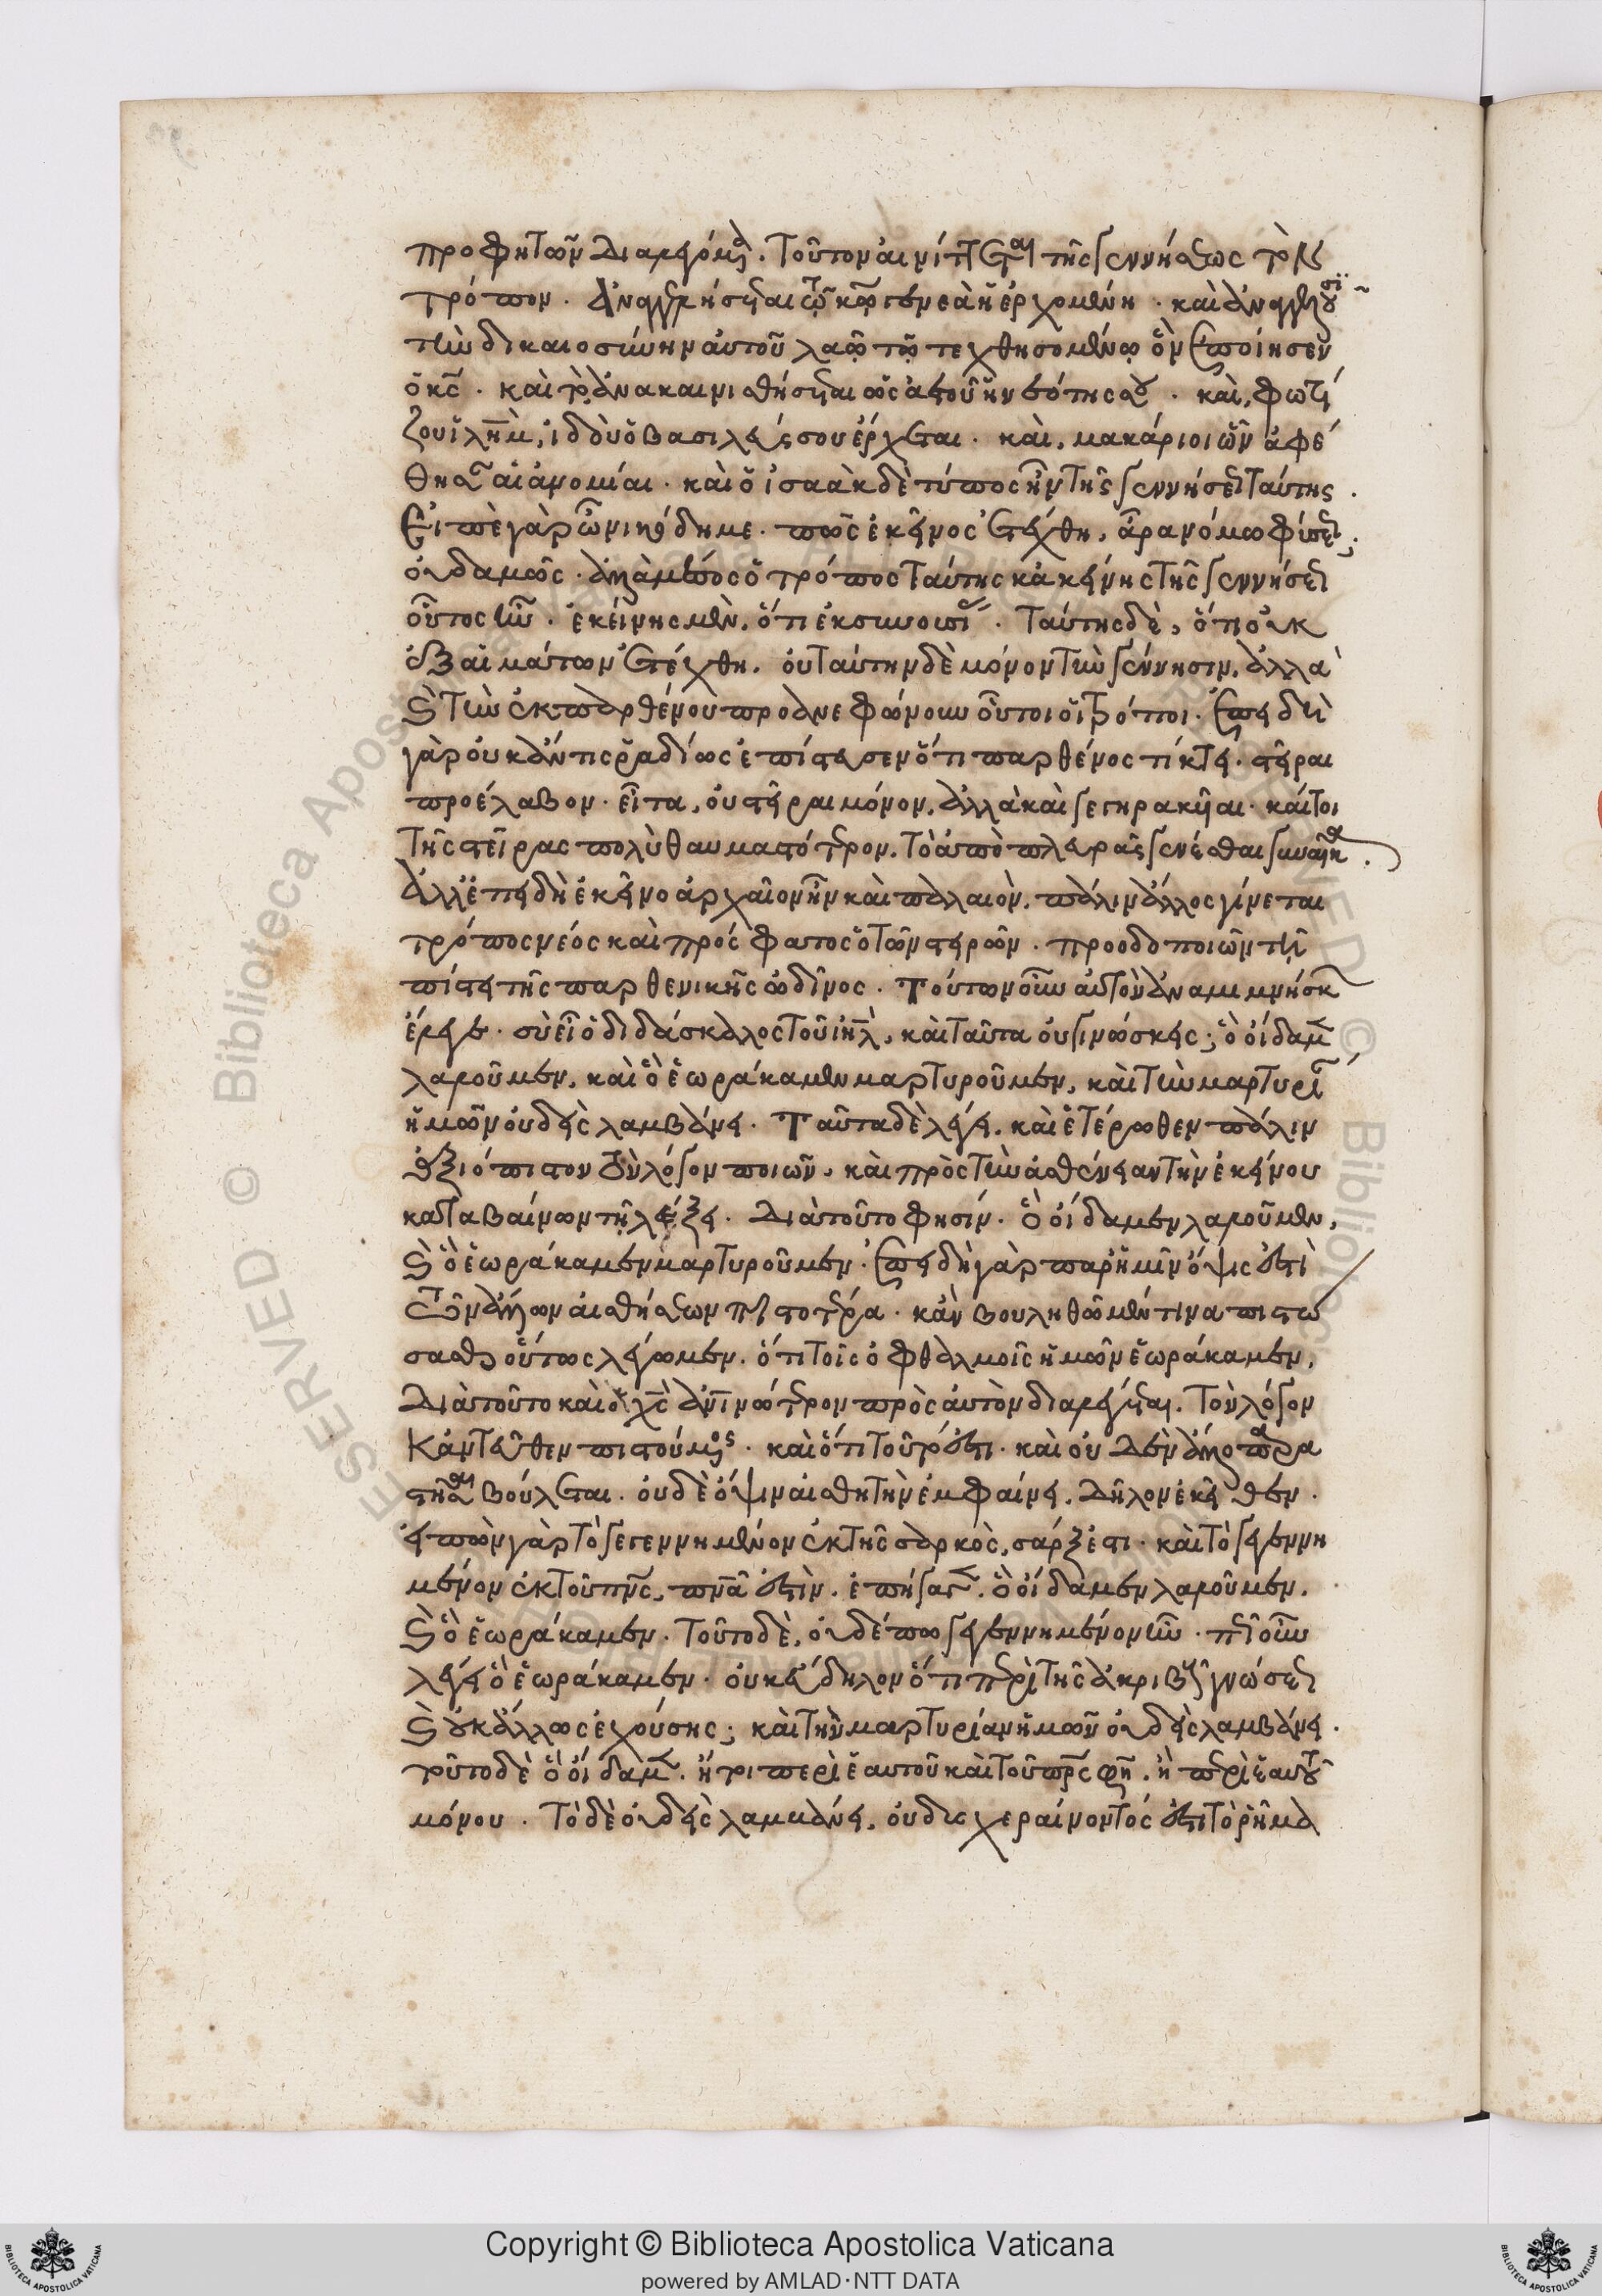 προφητῶν διαλεγόμενος. τοῦτον αἰνίττεται τῆς γεννήσεως τὸν
τρόπον. ἀναγγελήσεται τῷ κῳ γενεὰ ἡ ἐρχομένη. καὶ ἀναγγελοῦσι
τὴν δικαιοσύνην αὐτοῦ λαῷ τῷ τεχθησομένῳ ὃν ἐποίησεν
ὁ κς. καὶ τὸ ἀνακαινισθήσεται ὡς ἀετοῦ ἡ νεότης σου. καὶ, φωτί
ζου ἱλημ, ἰδοὺ ὁ βασιλεύς σου ἔρχεται. καὶ, μακάριοι ὧν ἀφέ
θησαν αἱ ἀνομίαι. καὶ ὁ ἰσαὰκ δὲ τύπος ἦν τῆς γεννήσεως ταύτης.
εἰπὲ γὰρ ὦ νικόδημε. πῶς ἐκεῖνος ἐτέχθη, ἆρα νόμω φύσεως;
οὐδαμῶς. ἀλλὰ μέσος ὁ τρόπος ταύτης κἀκείνης τῆς γεννήσεως
οὗτος ἦν. ἐκείνης μὲν, ὅτι ἐκ συνουσίας. ταύτης δὲ, ὅτι οὐκ
ἐξ αἱμάτων ἐτέχθη. οὐ ταύτην δὲ μόνον τὴν γέννησιν, ἀλλὰ
καὶ τὴν ἐκ παρθένου προανεφώνουν οὗτοι οἱ τρόποι. ἐπειδὴ
γὰρ οὐκ ἄν τις ῥαδίως ἐπίστευσεν ὅτι παρθένος τίκτει. στεῖραι
προέλαβον. εἶτα, οὐ στεῖραι μόνον, ἀλλὰ καὶ γεγηρακυῖαι. καίτοι
τῆς στείρας πολὺ θαυμαστότερον. τὸ ἀπὸ πλευρᾶς γενέσθαι γυναῖκα.
ἀλλ' ἐπειδὴ ἐκεῖνο ἀρχαῖον ἦν καὶ παλαιὸν. πάλιν ἄλλος γίνεται
τρόπος νέος καὶ πρόσφατος ὁ τῶν στειρῶν. προοδοποιῶν τῇ
πίστει τῆς παρθενικῆς ὠδῖνος. τούτων οὖν αὐτὸν ἀναμιμνήσκων
ἔλεγε. σὺ εἶ ὁ διδάσκαλος τοῦ ἰηλ, καὶ ταῦτα οὐ γινώσκεις; ὃ οἴδαμεν
λαλοῦμεν. καὶ ὃ ἑωράκαμεν μαρτυροῦμεν, καὶ τὴν μαρτυρίαν
ἡμῶν οὐδεὶς λαμβάνει. ταῦτα δὲ λέγει. καὶ ἑτέρωθεν πάλιν
ἀξιόπιστον τὸν λόγον ποιῶν. καὶ πρὸς τὴν ἀσθένειαν τὴν ἐκείνου
καταβαίνων τῇ λέξει. διὰ τοῦτο φησίν. ὃ οἴδαμεν λαλοῦμεν,
καὶ ὃ ἑωράκαμεν μαρτυροῦμεν. ἐπειδὴ γὰρ παρ' ἡμῖν ὄψις ἐστὶ
τῶν ἄλλων αἰσθήσεων πιστοτέρα. κἂν βουληθῶμέν τινα πιστώ
σασθαι οὕτως λέγομεν. ὅτι τοῖς ὀφθαλμοῖς ἡμῶν ἑωράκαμεν,
διὰ τοῦτο καὶ ὁ χς ἀνινώτερον πρὸς αὐτὸν διαλέγεται. τὸν λόγον
κἀντεῦθεν πιστούμενος. καὶ ὅτι τοῦτό ἐστι. καὶ οὐδὲν ἄλλο παρα
στῆσαι βούλεται. οὐδὲ ὄψιν αἰσθητὴν ἐμφαίνει. δῆλον ἐκεῖθεν.
εἰπὼν γὰρ τὸ γεγεννημένον ἐκ τῆς σαρκὸς, σάρξ ἐστι. καὶ τὸ γεγεννη
μένον ἐκ τοῦ πνς, πνα ἐστὶν. ἐπήγαγεν. ὃ οἴδαμεν λαλοῦμεν.
καὶ ὃ ἑωράκαμεν. τοῦτο δὲ, οὐδέπω γεγεννημένον ἦν. πῶς οὖν
λέγει ὃ ἑωράκαμεν. οὐκ εὔδηλον ὅτι περὶ τῆς ἀκριβοῦς γνώσεως
καὶ οὐκ ἄλλως ἐχούσης; καὶ τὴν μαρτυρίαν ἡμῶν οὐδεὶς λαμβάνει.
τοῦτο δὲ ὃ οἴδαμεν. ἤτοι περὶ ἑαυτοῦ καὶ τοῦ πρς φησὶ. ἢ περὶ ἑαυτοῦ
μόνου. τὸ δὲ οὐδεὶς λαμβάνει, οὐ δυσχεραίνοντός ἐστι τὸ ῥῆμα
Copyright © Biblioteca Apostolica Vaticana
powered by AMLAD·NTT DATA